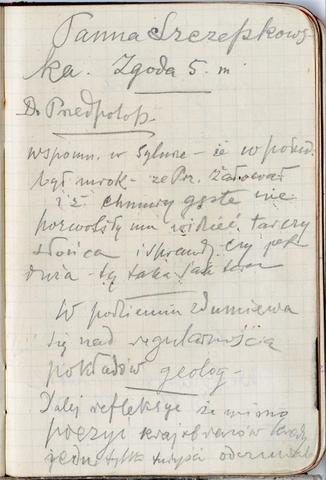 Panna Szczepkows-
ka. Zgoda 5. m
Do Przedpotop.
wspomn. w Sylurze - że w połud.
był mrok - że Prz. żałował
iż chmury gęste nie
pozwoliły mu widzieć tarczy
słońca i sprawdz. czy jest
taka jak teraz
W podziemiu zdumiewa
się nad regularnością
pokładów geolog -
Dalej refleksje że mimo
poezyi krajobrazów
jedn. tylko